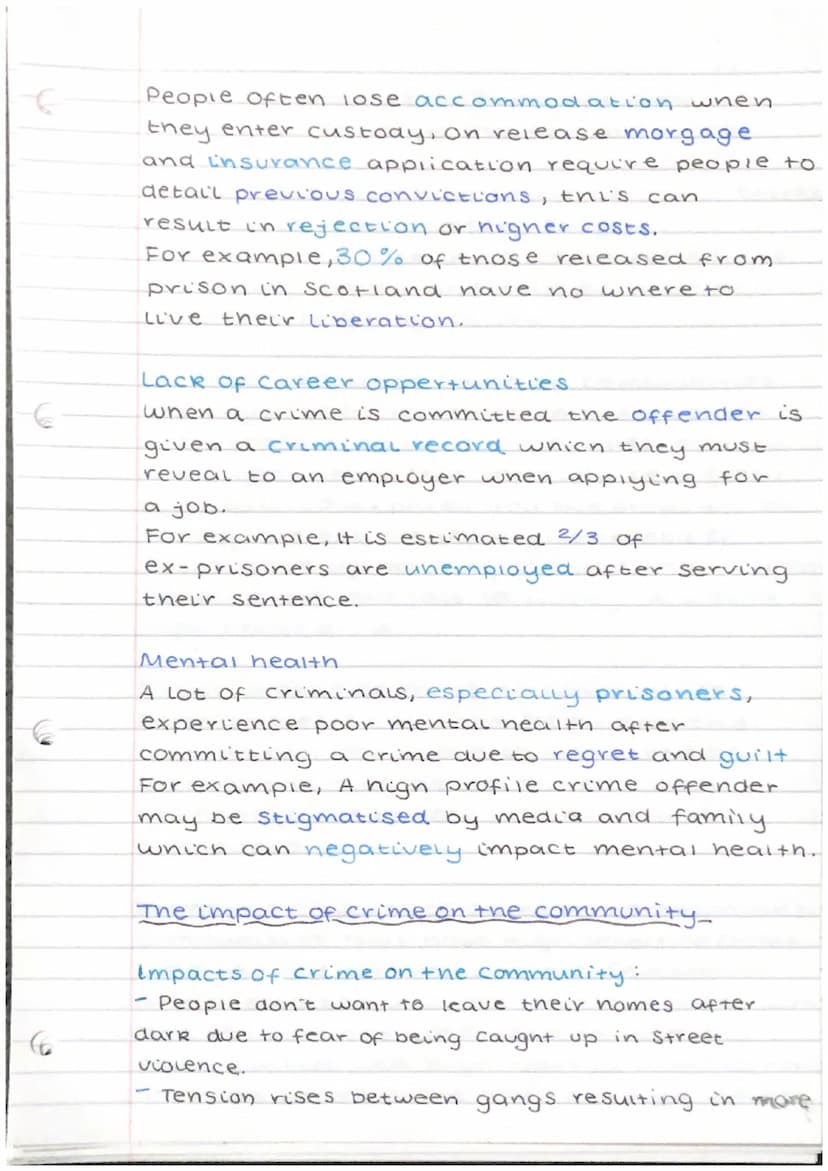 People often lose accommodation when
they enter custody, on release morgage
and insurance application require people to
detail previous convictions, this can
result in rejection or higher costs.
For example, 30% of those released from
prison in Scotland have no where to
live their liberation.
Lack of career oppertunities
When a crime is committed the offender is
given a criminal record which they must
reveal to an employer when applying for
a job.
For example, it is estimated 2/3 of
ex-prisoners are unemployed after serving
their sentence.
Mental health
A lot of criminals, especially prisoners,
experience poor mental health after
committing a crime due to regret and guilt
For example, A high profile crime offender
may be stigmatised by media and family
which can negatively impact mental health.
The impact of crime on the community
Impacts of crime on the community:
- People don't want to leave their homes after
dark due to fear of being caught up in street
violence.
- Tension rises between gangs resulting in more